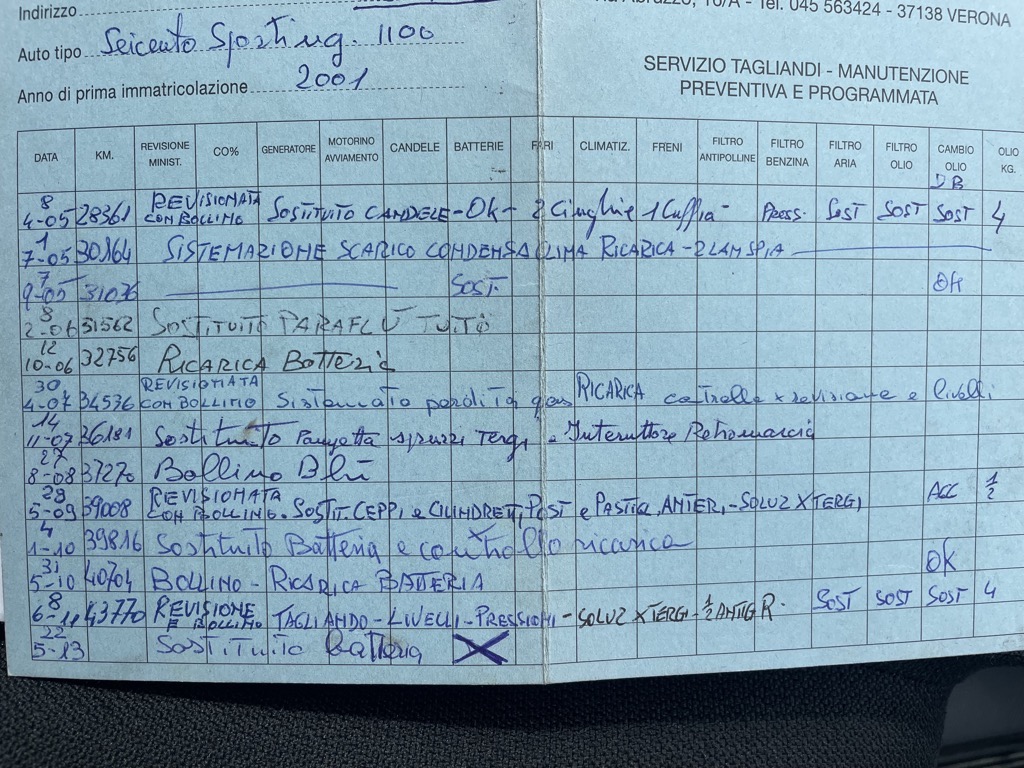 Indirizzo
10/A - Tel. 045 563424 - 37138 VERONA
Auto tipo Seicento Sporting. 1100
Anno di prima immatricolazione 2001
SERVIZIO TAGLIANDI - MANUTENZIONE
PREVENTIVA E PROGRAMMATA
DATA KM. REVISIONE MINIST. CO% GENERATORE MOTORINO AVVIAMENTO CANDELE BATTERIE FARI CLIMATIZ. FRENI FILTRO ANTIPOLLINE FILTRO BENZINA FILTRO ARIA FILTRO OLIO CAMBIO OLIO OLIO KG.
8 4-05 28361 REVISIONATA CON BOLLINO SOSTITUITO CANDELE - OK - 2 Cinghie 1 Cuffia - Press. SOST SOST SOST 4
1 7-05 30164 SISTEMAZIONE SCARICO CONDENSA CLIMA RICARICA - 2 LAMSPIA
7 9-05 31036 SOST. OK
8 2-06 31562 SOSTITUITO PARAFLÙ TUTTO
12 10-06 32756 RICARICA Batteria
30 4-07 34536 REVISIONATA CON BOLLINO Sistemato perdita gas RICARICA controllo x revisione e livelli
14 11-07 36181 Sostituito spruzzi Tergi e Interuttore Retromarcia
27 8-08 37270 Bollino Blù
28 5-09 39008 REVISIONATA CON BOLLINO. SOSTIT. CEPPI e CILINDRETTI POST e PASTIG. ANTER, - SOLUZ X TERGI ACC 1/2
4 1-10 39816 Sostituito Batteria e controllo ricarica
31 5-10 40704 BOLLINO - RICARICA BATTERIA OK
8 6-11 43770 REVISIONE E BOLLINO TAGLIANDO - LIVELLI - PRESSIONI - SOLUZ X TERGI - 1/2 ANTIGR. SOST SOST SOST 4
22 5-13 SOSTITUITO batteria X